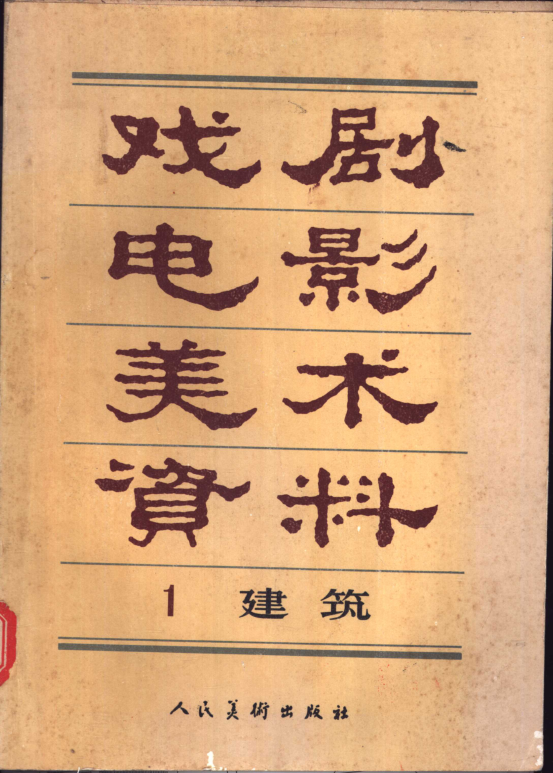 戏剧
电影
美术
資料
1 建筑
人民美術出版社